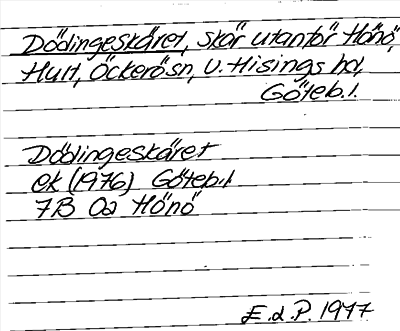 Dödingeskäret, skär utanför Hönö,
Hult, Öckerö sn, V. Hisings hd,
Göteb.l.
Dödingeskäret
ek (1976) Göteb.l
7B 0a Hönö
E.d.P. 1977